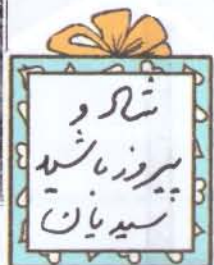 شاد و
پیروز باشید
سیدیان